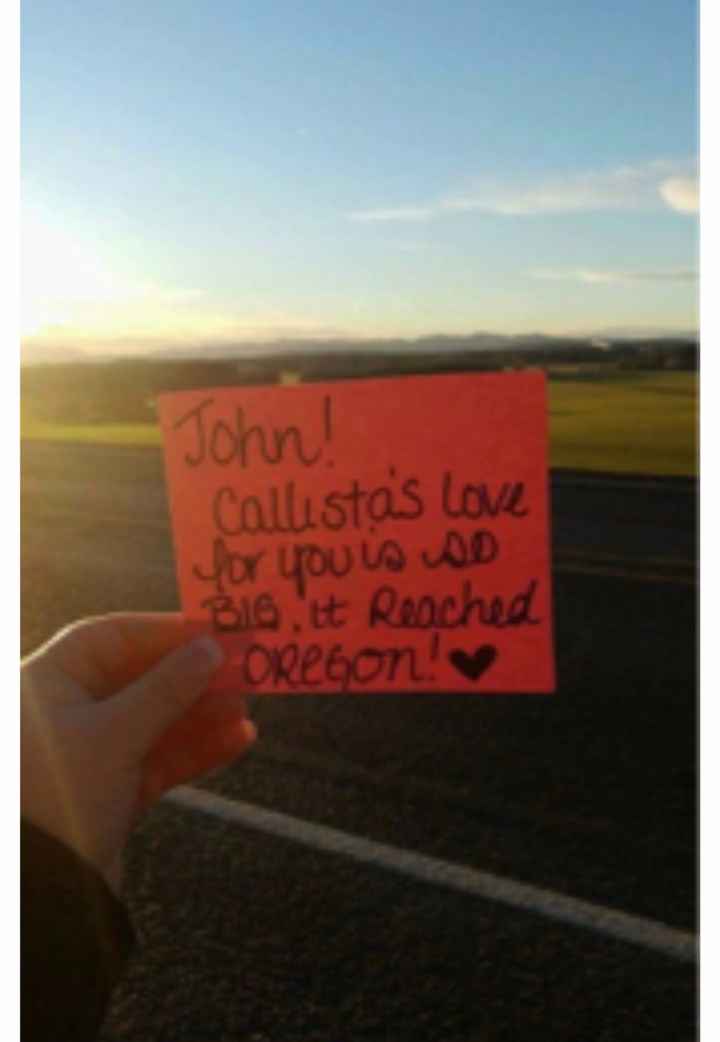 John!
Callista's love
for you is so
BIG. it Reached
OREGON! ♥